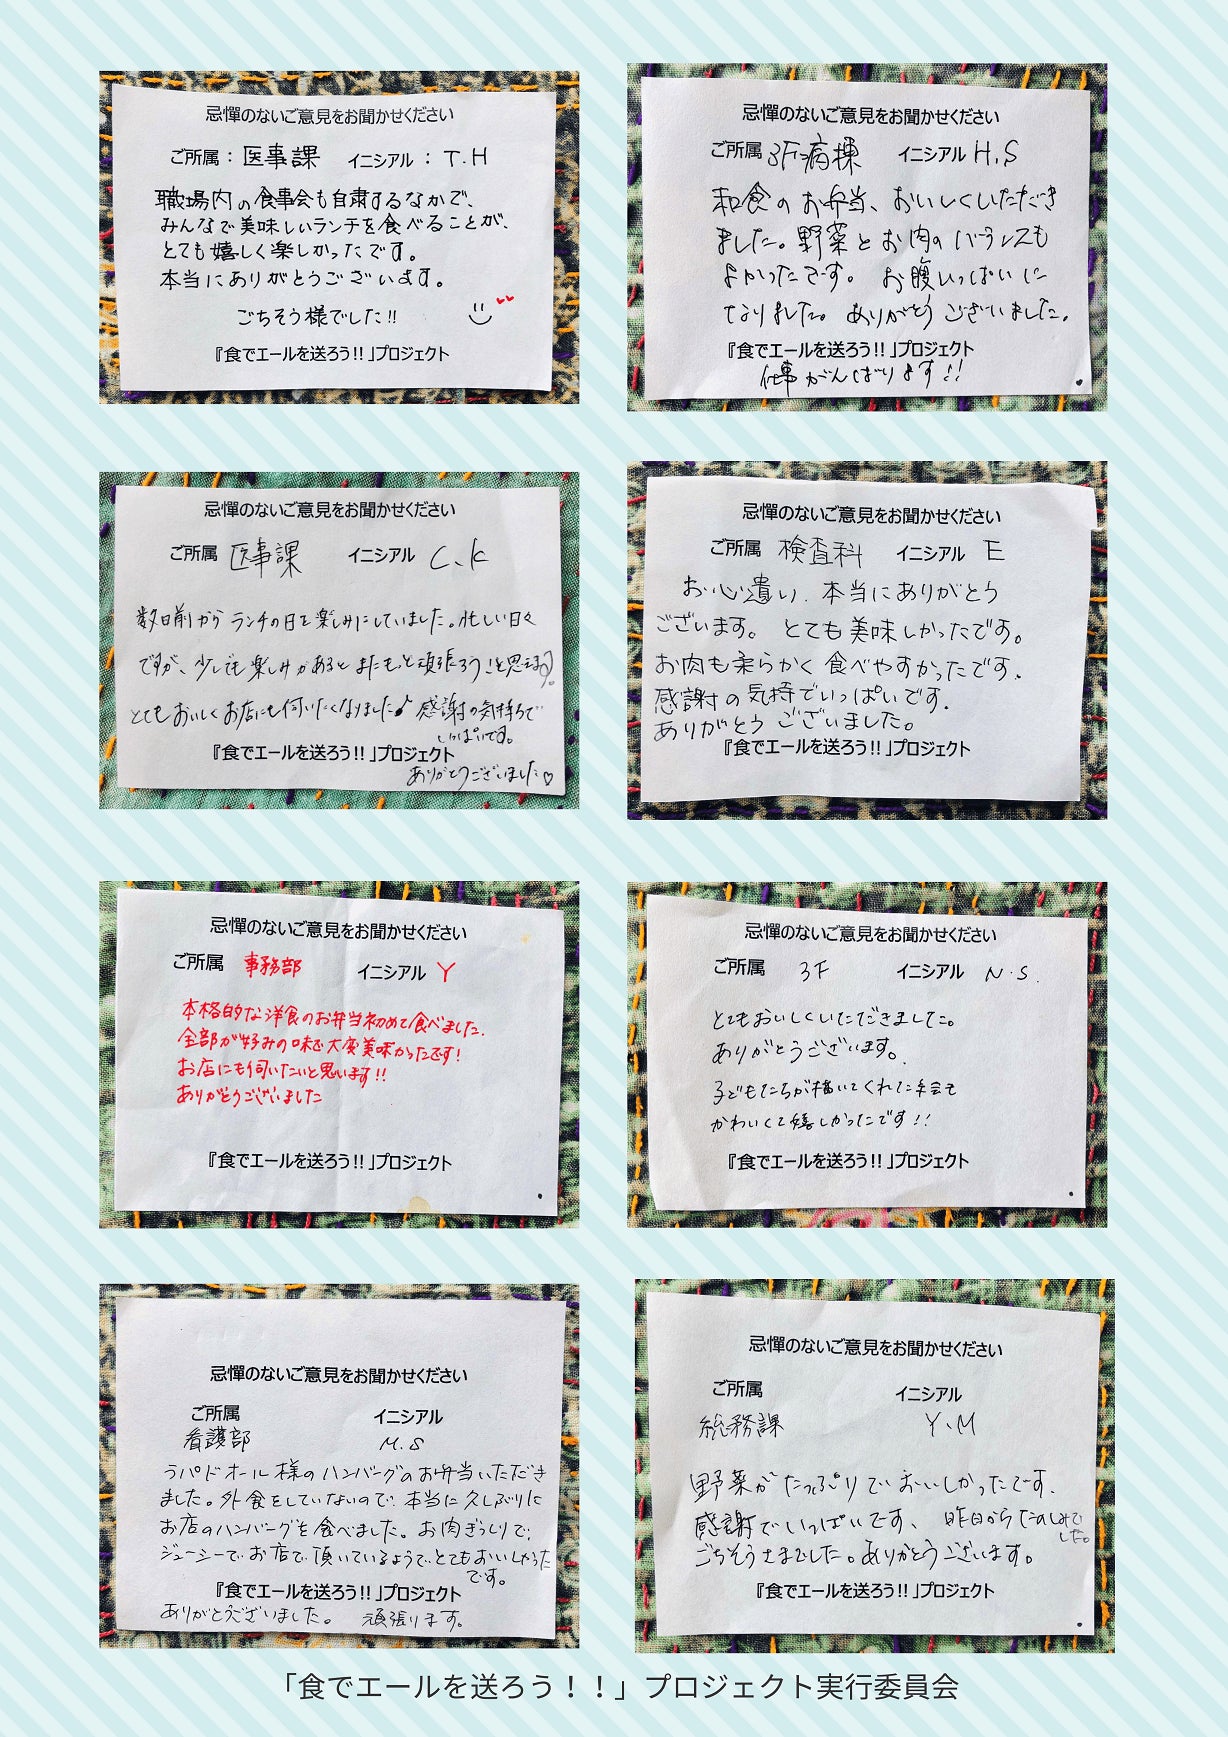 忌憚のないご意見をお聞かせください
ご所属：医事課 イニシアル：T.H
職場内の食事会も自粛するなかで、
みんなで美味しいランチを食べることが、
とても嬉しく楽しかったです。
本当にありがとうございます。
ごちそう様でした!!
『食でエールを送ろう!!」プロジェクト
忌憚のないご意見をお聞かせください
ご所属 3F病棟 イニシアル H.S
和食のお弁当、おいしくいただき
ました。野菜とお肉のバランスも
よかったです。お腹いっぱいに
なりました。ありがとうございました。
『食でエールを送ろう!!」プロジェクト
仕事がんばります!!
忌憚のないご意見をお聞かせください
ご所属 医事課 イニシアル C.K
数日前からランチの日を楽しみにしていました。忙しい日々
ですが、少しでも楽しみがあるとまたもっと頑張ろう!と思えます。
とてもおいしくお店にも伺いたくなりました♪感謝の気持ちで
いっぱいです。
『食でエールを送ろう!!」プロジェクト
ありがとうございました♡
忌憚のないご意見をお聞かせください
ご所属 検査科 イニシアル E
お心遣い、本当にありがとう
ございます。とても美味しかったです。
お肉も柔らかく食べやすかったです。
感謝の気持でいっぱいです。
ありがとうございました。
『食でエールを送ろう!!」プロジェクト
忌憚のないご意見をお聞かせください
ご所属 事務部 イニシアル Y
本格的な洋食のお弁当初めて食べました。
全部が好みの味で大変美味かったです!
お店にも伺いたいと思います!!
ありがとうございました
『食でエールを送ろう!!」プロジェクト
忌憚のないご意見をお聞かせください
ご所属 3F イニシアル N.S.
とてもおいしくいただきました。
ありがとうございます。
子どもたちが描いてくれた絵も
かわいくて嬉しかったです!!
『食でエールを送ろう!!」プロジェクト
忌憚のないご意見をお聞かせください
ご所属 イニシアル
看護部 M.S
うパドオール様のハンバーグのお弁当いただき
ました。外食をしていないので、本当に久しぶりに
お店のハンバーグを食べました。お肉ぎっしりで、
ジューシーでお店で頂いているようでとてもおいしかった
です。
『食でエールを送ろう!!」プロジェクト
ありがとうございました。頑張ります。
忌憚のないご意見をお聞かせください
ご所属 イニシアル
総務課 Y.M
野菜がたっぷりでおいしかったです。
感謝でいっぱいです、昨日からたのしみで
した。
ごちそうさまでした。ありがとうございます。
『食でエールを送ろう!!」プロジェクト
「食でエールを送ろう！！」プロジェクト実行委員会